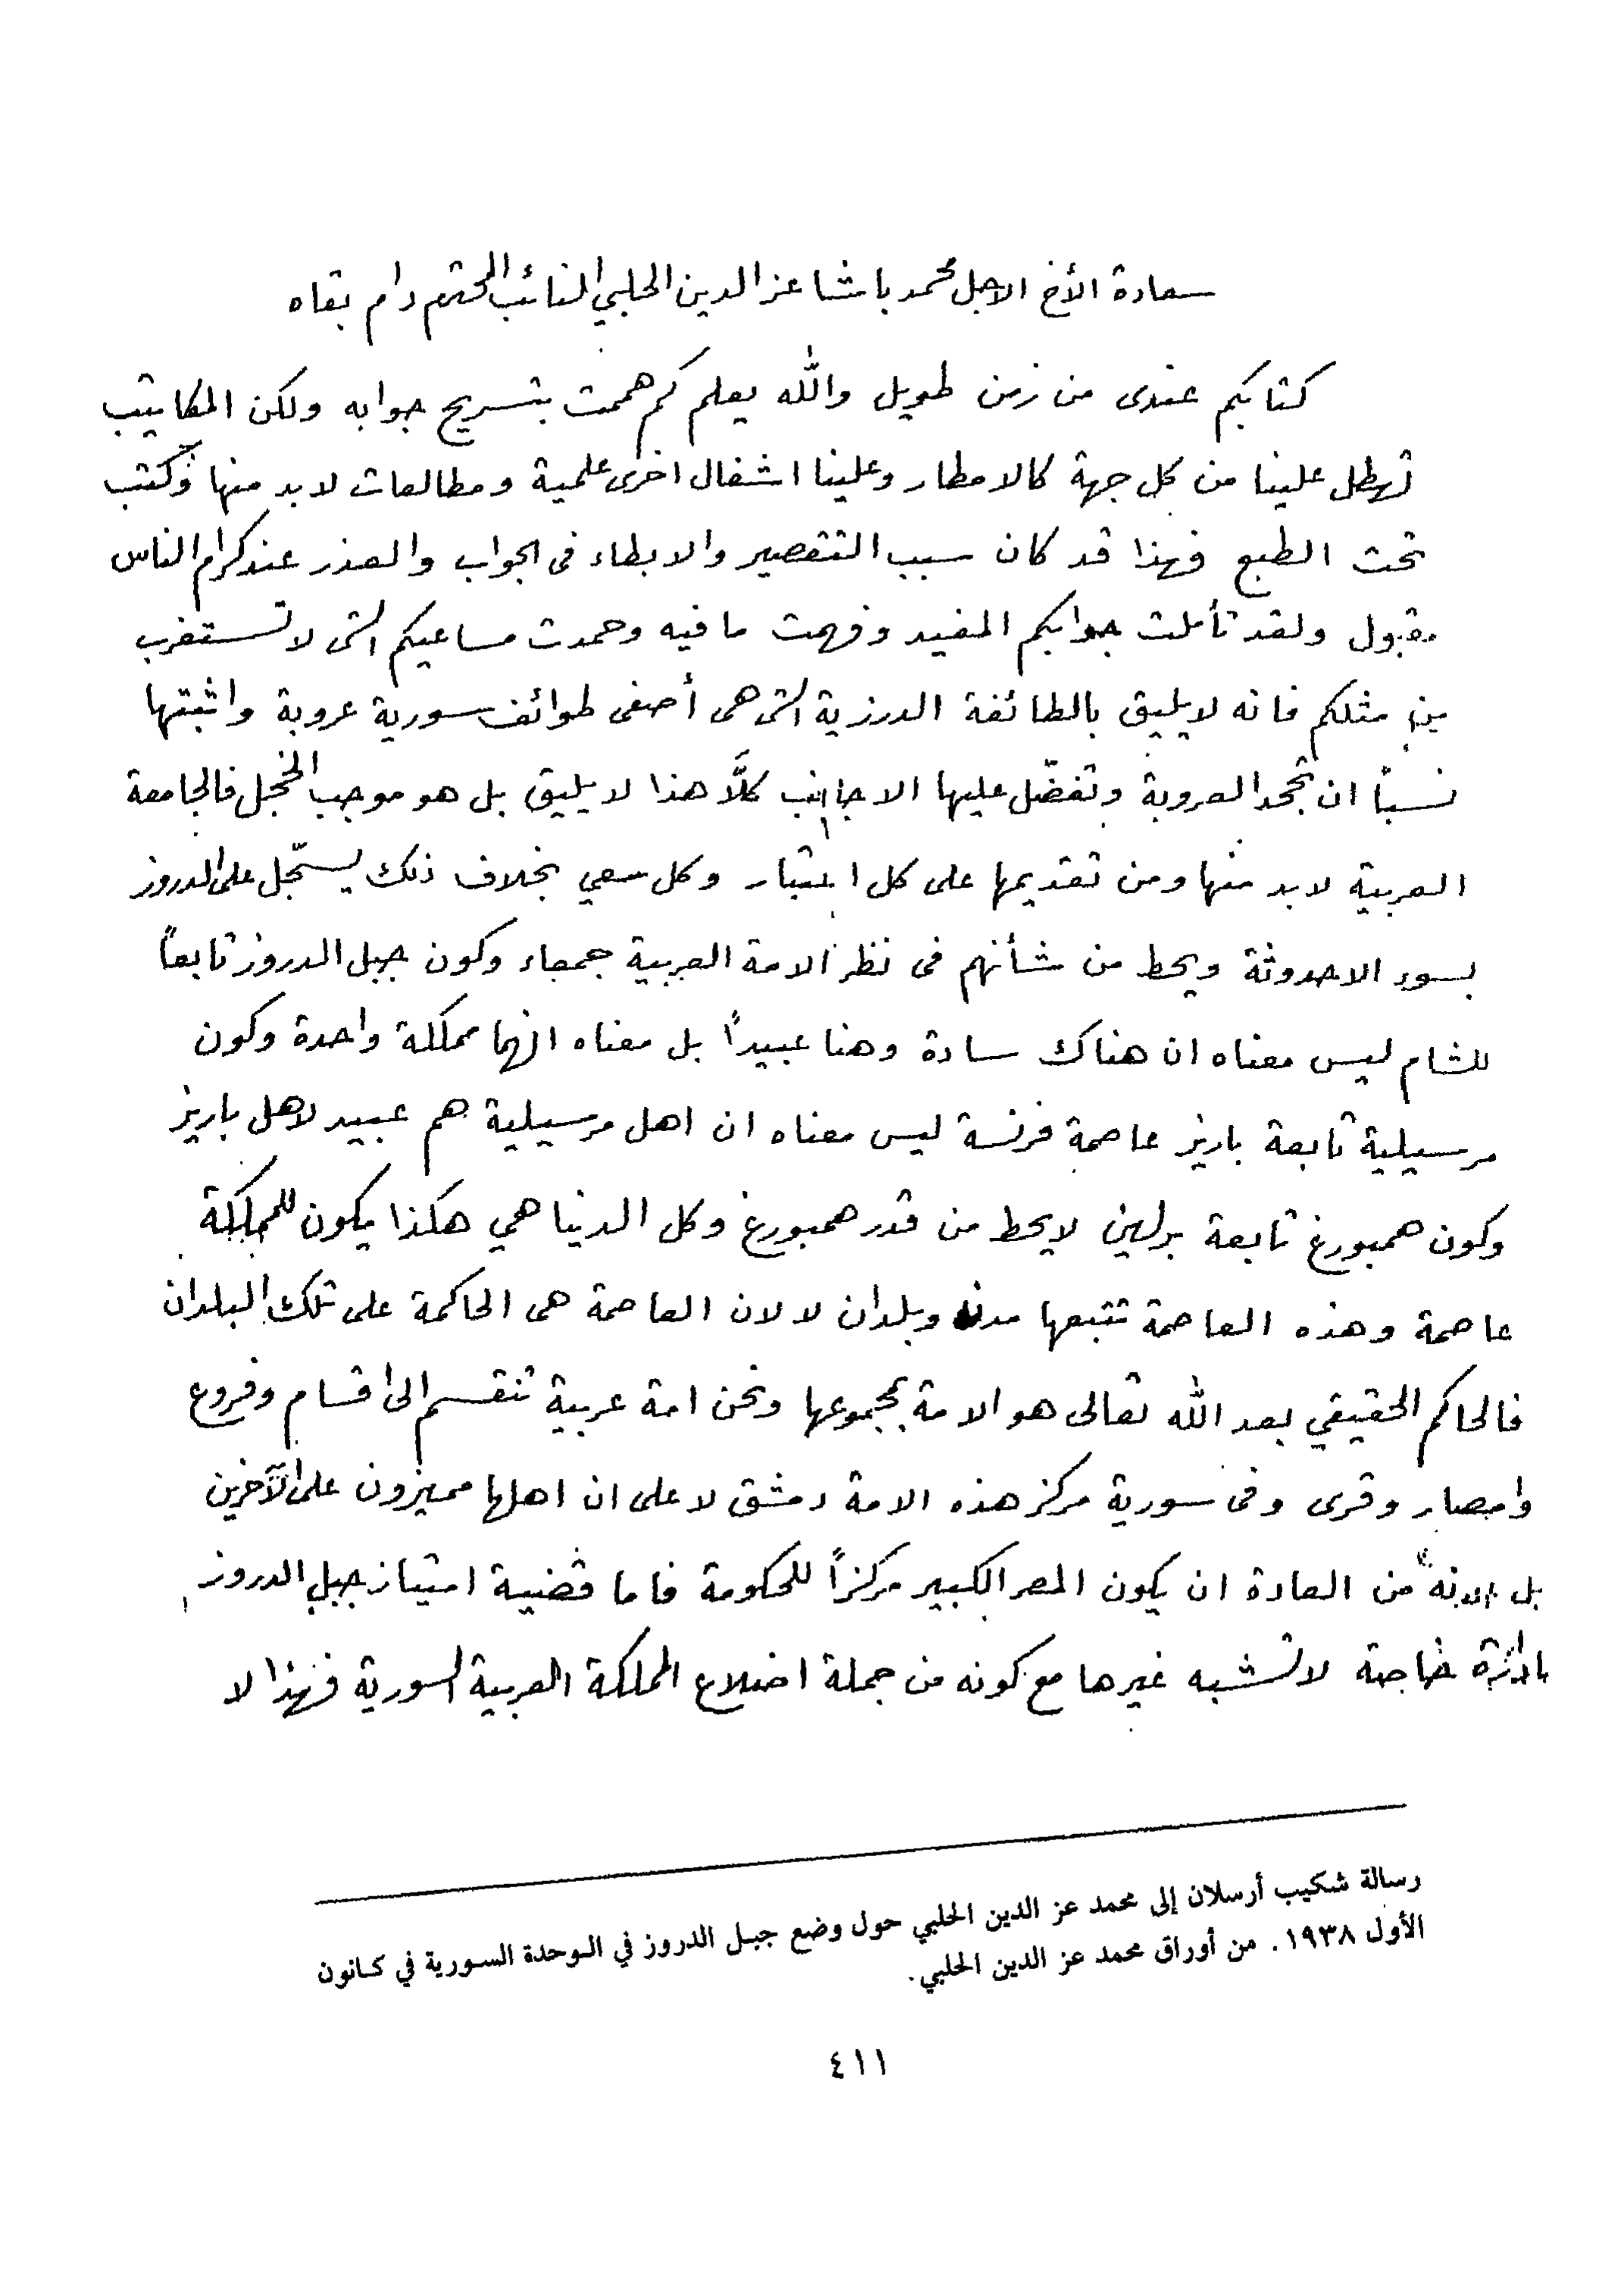 سعادة الأخ الاجل محمد باشا عز الدين الحلبي النائب المحترم دام بقاه
كتابكم عندى من زمن طويل والله يعلم كم هممت بتسريح جوابه ولكن المكاتيب
تهطل علينا من كل جهة كالامطار وعلينا اشغال اخرى علمية ومطالعات لابد منها وكتب
تحت الطبع فهذا قد كان سبب التقصير والابطاء فى الجواب والعذر عند كرام الناس
مقبول ولقد تأملت جوابكم المفيد وفهمت ما فيه وحمدت مساعيكم التى لا تستغرب
من مثلكم فانه لا يليق بالطائفة الدرزية التى هى أصفى طوائف سورية عروبة واثبتها
نسباً ان تجحد العروبة وتفضّل عليها الاجانب كلَّا هذا لا يليق بل هو موجب الخجل فالجامعة
العربية لابد منها ومن تقديمها على كل اعتبار وكل سعي بخلاف ذلك يسجّل على الدروز
بسوء الاحدوثة ويحط من شأنهم فى نظر الامة العربية جمعاء وكون جبل الدروز تابعاً
للشام ليس معناه ان هناك سادة وهنا عبيداً بل معناه انهما مملكة واحدة وكون
مرسيلية تابعة باريز عاصمة فرنسة ليس معناه ان اهل مرسيلية هم عبيد لاهل باريز
وكون همبورغ تابعة برلين لا يحط من قدر همبورغ وكل الدنيا هي هكذا يكون للمملكة
عاصمة وهذه العاصمة تتبعها مدن وبلدان لا لان العاصمة هى الحاكمة على تلك البلدان
فالحاكم الحقيقي بعد الله تعالى هو الامة بمجموعها ونحن امة عربية تنقسم الى اقسام وفروع
وامصار وقرى وفى سورية مركز هذه الامة دمشق لا على ان اهلها مميزون على الآخرين
بل لانه من العادة ان يكون المصر الكبير مركزاً للحكومة فاما قضية امتياز جبل الدروز
بادارة خاصة لا تشبه غيرها مع كونه من جملة اضلاع المملكة العربية السورية فهذا لا
رسالة شكيب أرسلان إلى محمد عز الدين الحلبي حول وضع جبل الدروز في الوحدة السورية في كانون
الأول ١٩٣٨. من أوراق محمد عز الدين الحلبي.
٤١١